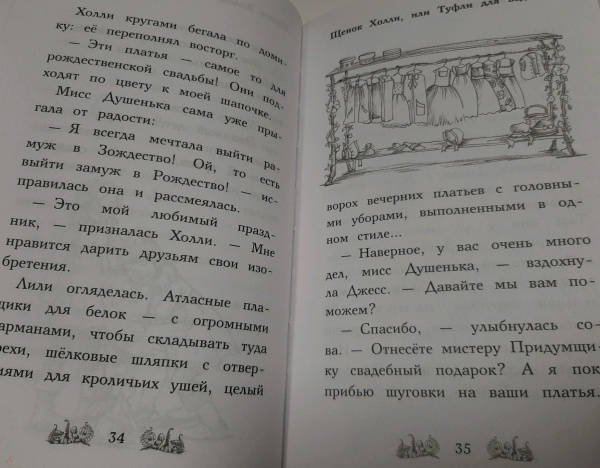 Холли кругами бегала по доми-
ку: её переполнял восторг.
— Эти платья — самое то для
рождественской свадьбы! Они под-
ходят по цвету к моей шапочке.
Мисс Душенька сама уже пры-
гала от радости:
— Я всегда мечтала выйти за-
муж в Зождество! Ой, то есть
выйти замуж в Рождество! — ис-
правилась она и рассмеялась.
— Это мой любимый празд-
ник, — призналась Холли. — Мне
нравится дарить друзьям свои изо-
бретения.
Лили огляделась. Атласные пла-
щики для белок — с огромными
арманами, чтобы складывать туда
рехи, шёлковые шляпки с отвер-
иями для кроличьих ушей, целый
34
Щенок Холли, или Туфли для
ворох вечерних платьев с головны-
ми уборами, выполненными в од-
ном стиле...
— Наверное, у вас очень много
дел, мисс Душенька, — вздохну-
ла Джесс. — Давайте мы вам по-
можем?
— Спасибо, — улыбнулась со-
ва. — Отнесёте мистеру Придумщи-
ку свадебный подарок? А я пок
прибью шуговки на ваши платья.
35